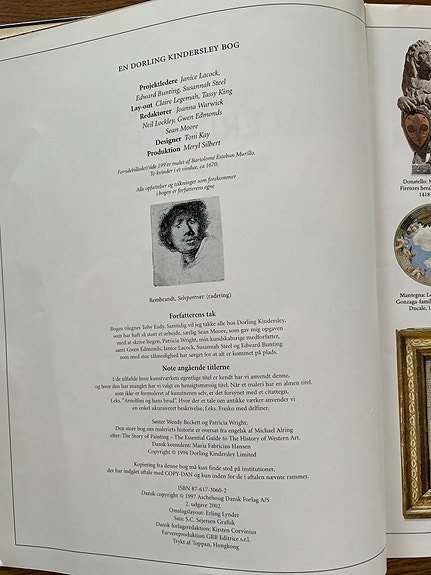 EN DORLING KINDERSLEY BOG
Projektledere Janice Lacock,
Edward Bunting, Susannah Steel
Lay-out Claire Legemah, Tassy King
Redaktører Joanna Warwick
Neil Lockley, Gwen Edmonds
Sean Moore
Designer Toni Kay
Produktion Meryl Silbert
Forsidebilledet/side 199 er malet af Bartolomé Esteban Murillo.
To kvinder i et vindue, ca 1670.
Alle opfattelser og tolkninger som forekommer
i bogen er forfatterens egne
Rembrandt, Selvportræt (radering)
Forfatterens tak
Bogen tilegnes Toby Eady. Samtidig vil jeg takke alle hos Dorling Kindersley,
som har haft så stort et arbejde, særlig Sean Moore, som gav mig opgaven
med at skrive bogen, Patricia Wright, min kundskabsrige medforfatter,
samt Gwen Edmonds, Janice Lacock, Susannah Steel og Edward Bunting
som med stor tålmodighed har sørget for at alt er kommet på plads.
Note angående titlerne
I de tilfælde hvor kunstværkets egentlige titel er kendt har vi anvendt denne,
og hvor den har manglet har vi valgt en hensigtsmæssig titel. Når et maleri har en almen titel,
som ikke er formuleret af kunstneren selv, er det forsynet med et citattegn,
f.eks. "Arnolfini og hans brud". Hvor der er tale om antikke værker anvender vi
en enkel akkurativt beskrivelse, f.eks. Fresko med delfiner.
Søster Wendy Beckett og Patricia Wright:
Den store bog om maleriets historie er oversat fra engelsk af Michael Alring
efter: The Story of Painting – The Essential Guide to The History of Western Art.
Dansk konsulent: Maria Fabricius Hansen
Copyright © 1994 Dorling Kindersley Limited
Kopiering fra denne bog må kun finde sted på institutioner,
der har indgået aftale med COPY-DAN og kun inden for de i aftalen nævnte rammer.
ISBN 87-617-3060-2
Dansk copyright © 1997 Aschehoug Dansk Forlag A/S
2. udgave 2002
Omslagslayout: Erling Lynder
Sats: S.C. Sejersen Grafisk
Dansk forlagsredaktion: Kirsten Corvinius
Farvereproduktion GRB Editrice s.r.l.
Trykt af Toppan, Hongkong
Donatello: M
Firenzes hera
1418-
Mantegna: Lo
Gonzaga-famil
Ducale, 1